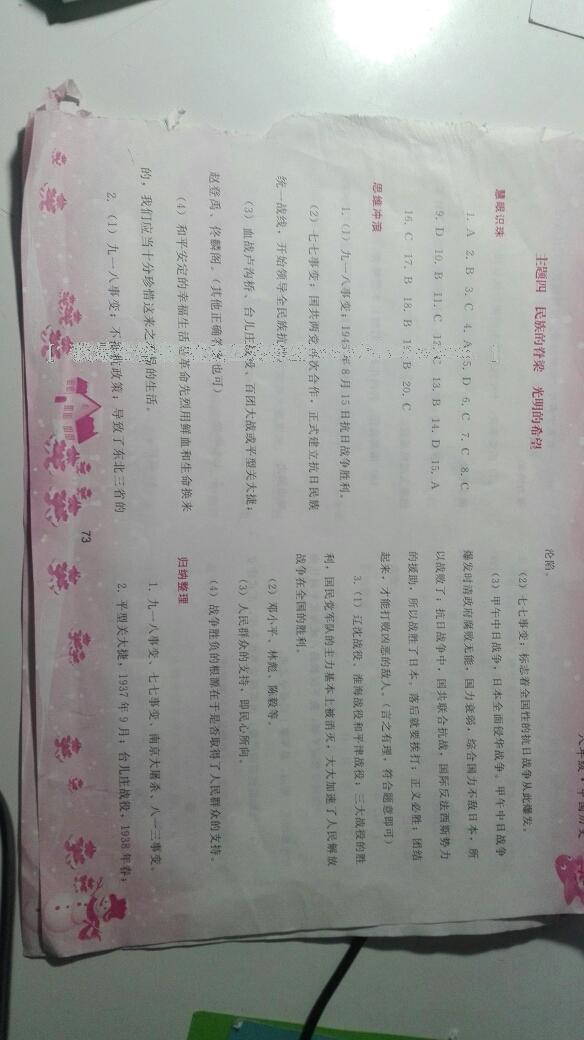 主题四 民族的脊梁 光明的希望
慧眼识珠
1. A 2. B 3. C 4. A 5. D 6. C 7. C 8. C
9. D 10. B 11. C 12. C 13. B 14. D 15. A
16. C 17. B 18. B 19. B 20. C
思维冲浪
1. (1) 九一八事变；1945年8月15日抗日战争胜利。
(2) 七七事变；国共两党再次合作，正式建立抗日民族
统一战线，开始领导全民族抗
(3) 血战卢沟桥、台儿庄战役、百团大战或平型关大捷；
赵登禹、佟麟阁。(其他正确答案也可)
(4) 和平安定的幸福生活是革命先烈用鲜血和生命换来
的，我们应当十分珍惜这来之不易的生活。
2. (1) 九一八事变；不抵抗政策；导致了东北三省的
沦陷。
(2) 七七事变；标志着全国性的抗日战争从此爆发。
(3) 甲午中日战争，日本全面侵华战争。甲午中日战争
爆发时清政府腐败无能，国力衰弱，综合国力不敌日本，所
以战败了；抗日战争中，国共联合抗战，国际反法西斯势力
的援助，所以战胜了日本。落后就要挨打；正义必胜；团结
起来，才能打败凶恶的敌人。(言之有理，符合题意即可)
3. (1) 辽沈战役、淮海战役和平津战役；三大战役的胜
利，国民党军队的主力基本上被消灭，大大加速了人民解放
战争在全国的胜利。
(2) 邓小平、林彪、陈毅等。
(3) 人民群众的支持，即民心所向。
(4) 战争胜负的根源在于是否取得了人民群众的支持。
归纳整理
1. 九一八事变、七七事变、南京大屠杀、八一三事变。
2. 平型关大捷，1937年9月；台儿庄战役，1938年春；
73